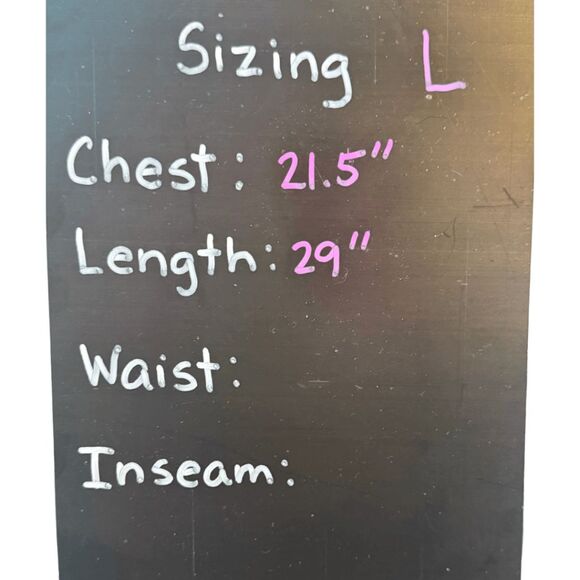 Sizing L
Chest: 21.5"
Length: 29"
Waist:
Inseam: